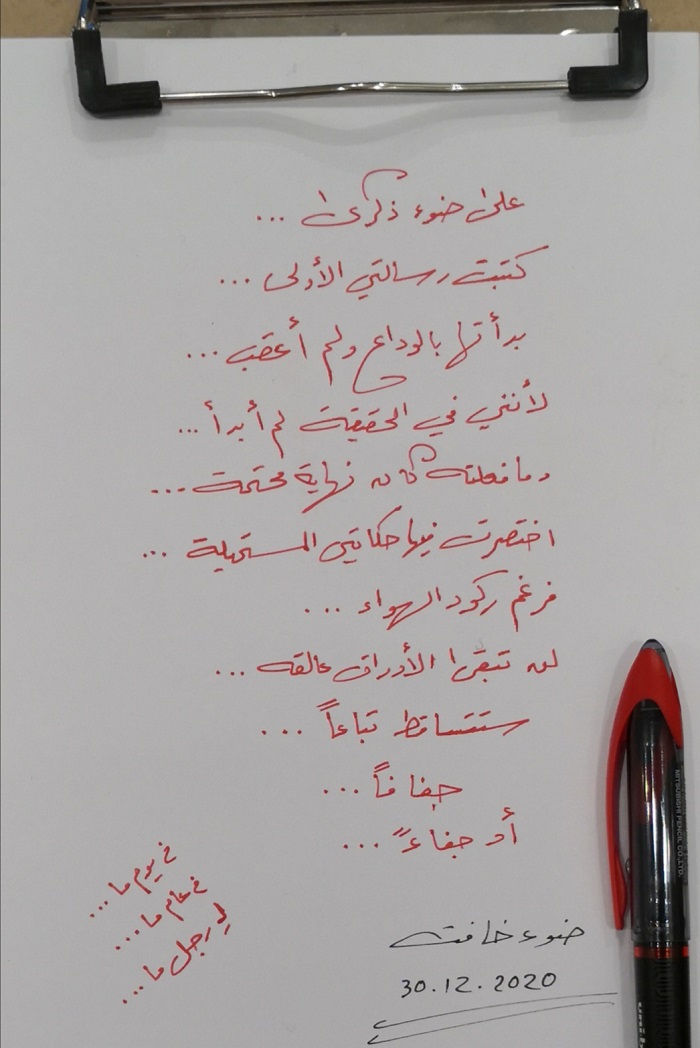 على ضوء ذكرى ...
كتبت رسالتي الأولى ...
بدأتها بالوداع ولم أعقب ...
لأنني في الحقيقة لم أبدأ ...
وما فعلته كان نهاية محتمة ...
اختصرت فيها حكايتي المستحيلة ...
فرغم ركود الهواء ...
لن تبقى الأوراق عالقه ...
ستتساقط تباعاً ...
جفافاً ...
أو جفاءً ...
في يوم ما ...
في عام ما ...
لرجل ما ...
ضوء خافت
30.12.2020
MITSUBISHI PENCIL CO.,LTD.